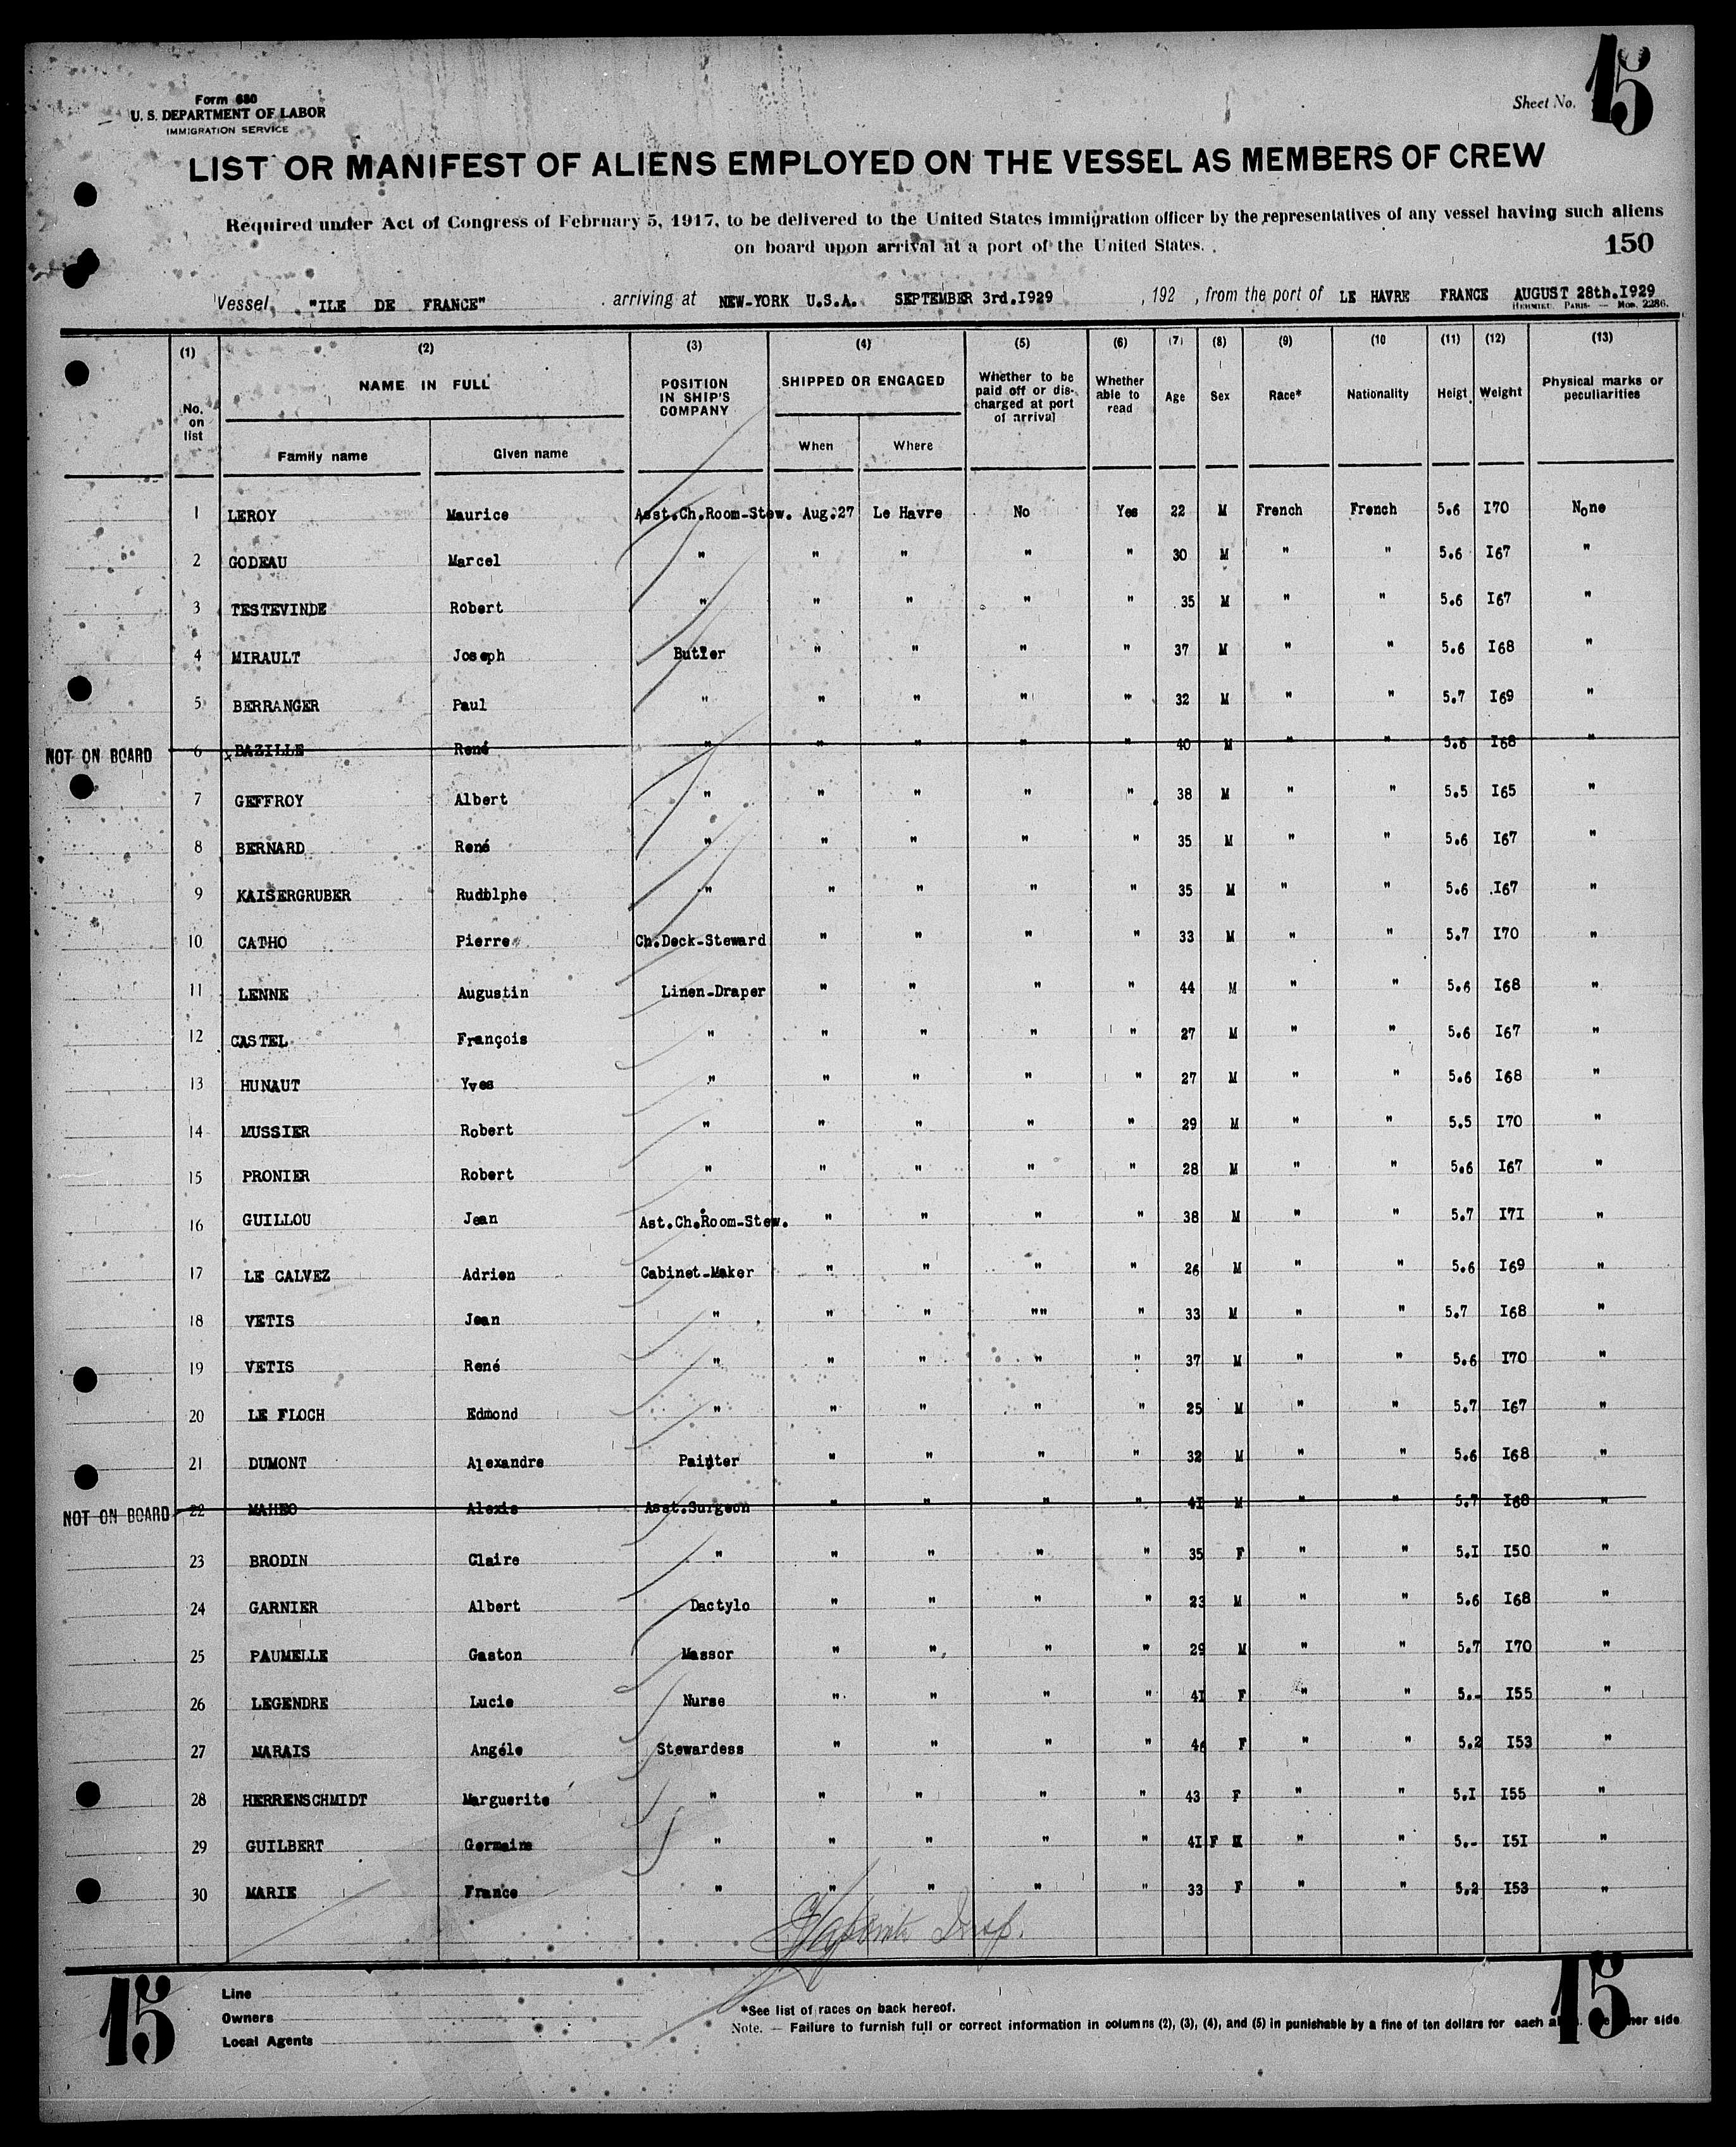 Form 680
U. S. DEPARTMENT OF LABOR
IMMIGRATION SERVICE
Sheet No. 15
LIST OR MANIFEST OF ALIENS EMPLOYED ON THE VESSEL AS MEMBERS OF CREW
Required under Act of Congress of February 5, 1917, to be delivered to the United States immigration officer by the representatives of any vessel having such aliens
on board upon arrival at a port of the United States.
150
Vessel "ILE DE FRANCE" arriving at NEW-YORK U.S.A. SEPTEMBER 3rd.I929, 192 , from the port of LE HAVRE FRANCE AUGUST 28th.I929
HERMIEU. PARIS. — MOD. 2286.
(1) (2) (3) (4) (5) (6) (7) (8) (9) (10 (11) (12) (13)
No. on list
NAME IN FULL
Family name Given name
POSITION IN SHIP'S COMPANY
SHIPPED OR ENGAGED
When Where
Whether to be paid off or discharged at port of arrival
Whether able to read
Age Sex Race* Nationality Heigt Weight
Physical marks or peculiarities
1 LEROY Maurice Asst.Ch.Room-Stew. Aug.27 Le Havre No Yes 22 M French French 5.6 I70 None
2 GODEAU Marcel " " " " " 30 M " " 5.6 I67 "
3 TESTEVINDE Robert " " " " " 35 M " " 5.6 I67 "
4 MIRAULT Joseph Butler " " " " 37 M " " 5.6 I68 "
5 BERRANGER Paul " " " " " 32 M " " 5.7 I69 "
NOT ON BOARD 6 x BAZILLE René " " " " " 40 M " " 5.6 I68 "
7 GEFFROY Albert " " " " " 38 M " " 5.5 I65 "
8 BERNARD René " " " " " 35 M " " 5.6 I67 "
9 KAISERGRUBER Rudolphe " " " " " 35 M " " 5.6 I67 "
10 CATHO Pierre Ch.Deck-Steward " " " " 33 M " " 5.7 I70 "
11 LENNE Augustin Linen-Draper " " " " 44 M " " 5.6 I68 "
12 CASTEL François " " " " " 27 M " " 5.6 I67 "
13 HUNAUT Yves " " " " " 27 M " " 5.6 I68 "
14 MUSSIER Robert " " " " " 29 M " " 5.5 I70 "
15 PRONIER Robert " " " " " 28 M " " 5.6 I67 "
16 GUILLOU Jean Ast.Ch.Room-Stew. " " " " 38 M " " 5.7 I7I "
17 LE CALVEZ Adrien Cabinet-Maker " " " " 26 M " " 5.6 I69 "
18 VETIS Jean " " " "" " 33 M " " 5.7 I68 "
19 VETIS René " " " " " 37 M " " 5.6 I70 "
20 LE FLOCH Edmond " " " " " 25 M " " 5.7 I67 "
21 DUMONT Alexandre Painter " " " " 32 M " " 5.6 I68 "
NOT ON BOARD 22 MAHEO Alexis Asst.Surgeon " " " " 4I M " " 5.7 I68 "
23 BRODIN Claire " " " " " 35 F " " 5.I I50 "
24 GARNIER Albert Dactylo " " " " 23 M " " 5.6 I68 "
25 PAUMELLE Gaston Massor " " " " 29 M " " 5.7 I70 "
26 LEGENDRE Lucie Nurse " " " " 4I F " " 5.- I55 "
27 MARAIS Angéle Stewardess " " " " 46 F " " 5.2 I53 "
28 HERRENSCHMIDT Marguerite " " " " " 43 F " " 5.I I55 "
29 GUILBERT Germaine " " " " " 4I F " " 5.- I5I "
30 MARIE France " " " " " 33 F " " 5.2 I53 "
Insp.
15
Line
Owners
Local Agents
*See list of races on back hereof.
Note. — Failure to furnish full or correct information in columns (2), (3), (4), and (5) in punishable by a fine of ten dollars for each side
15